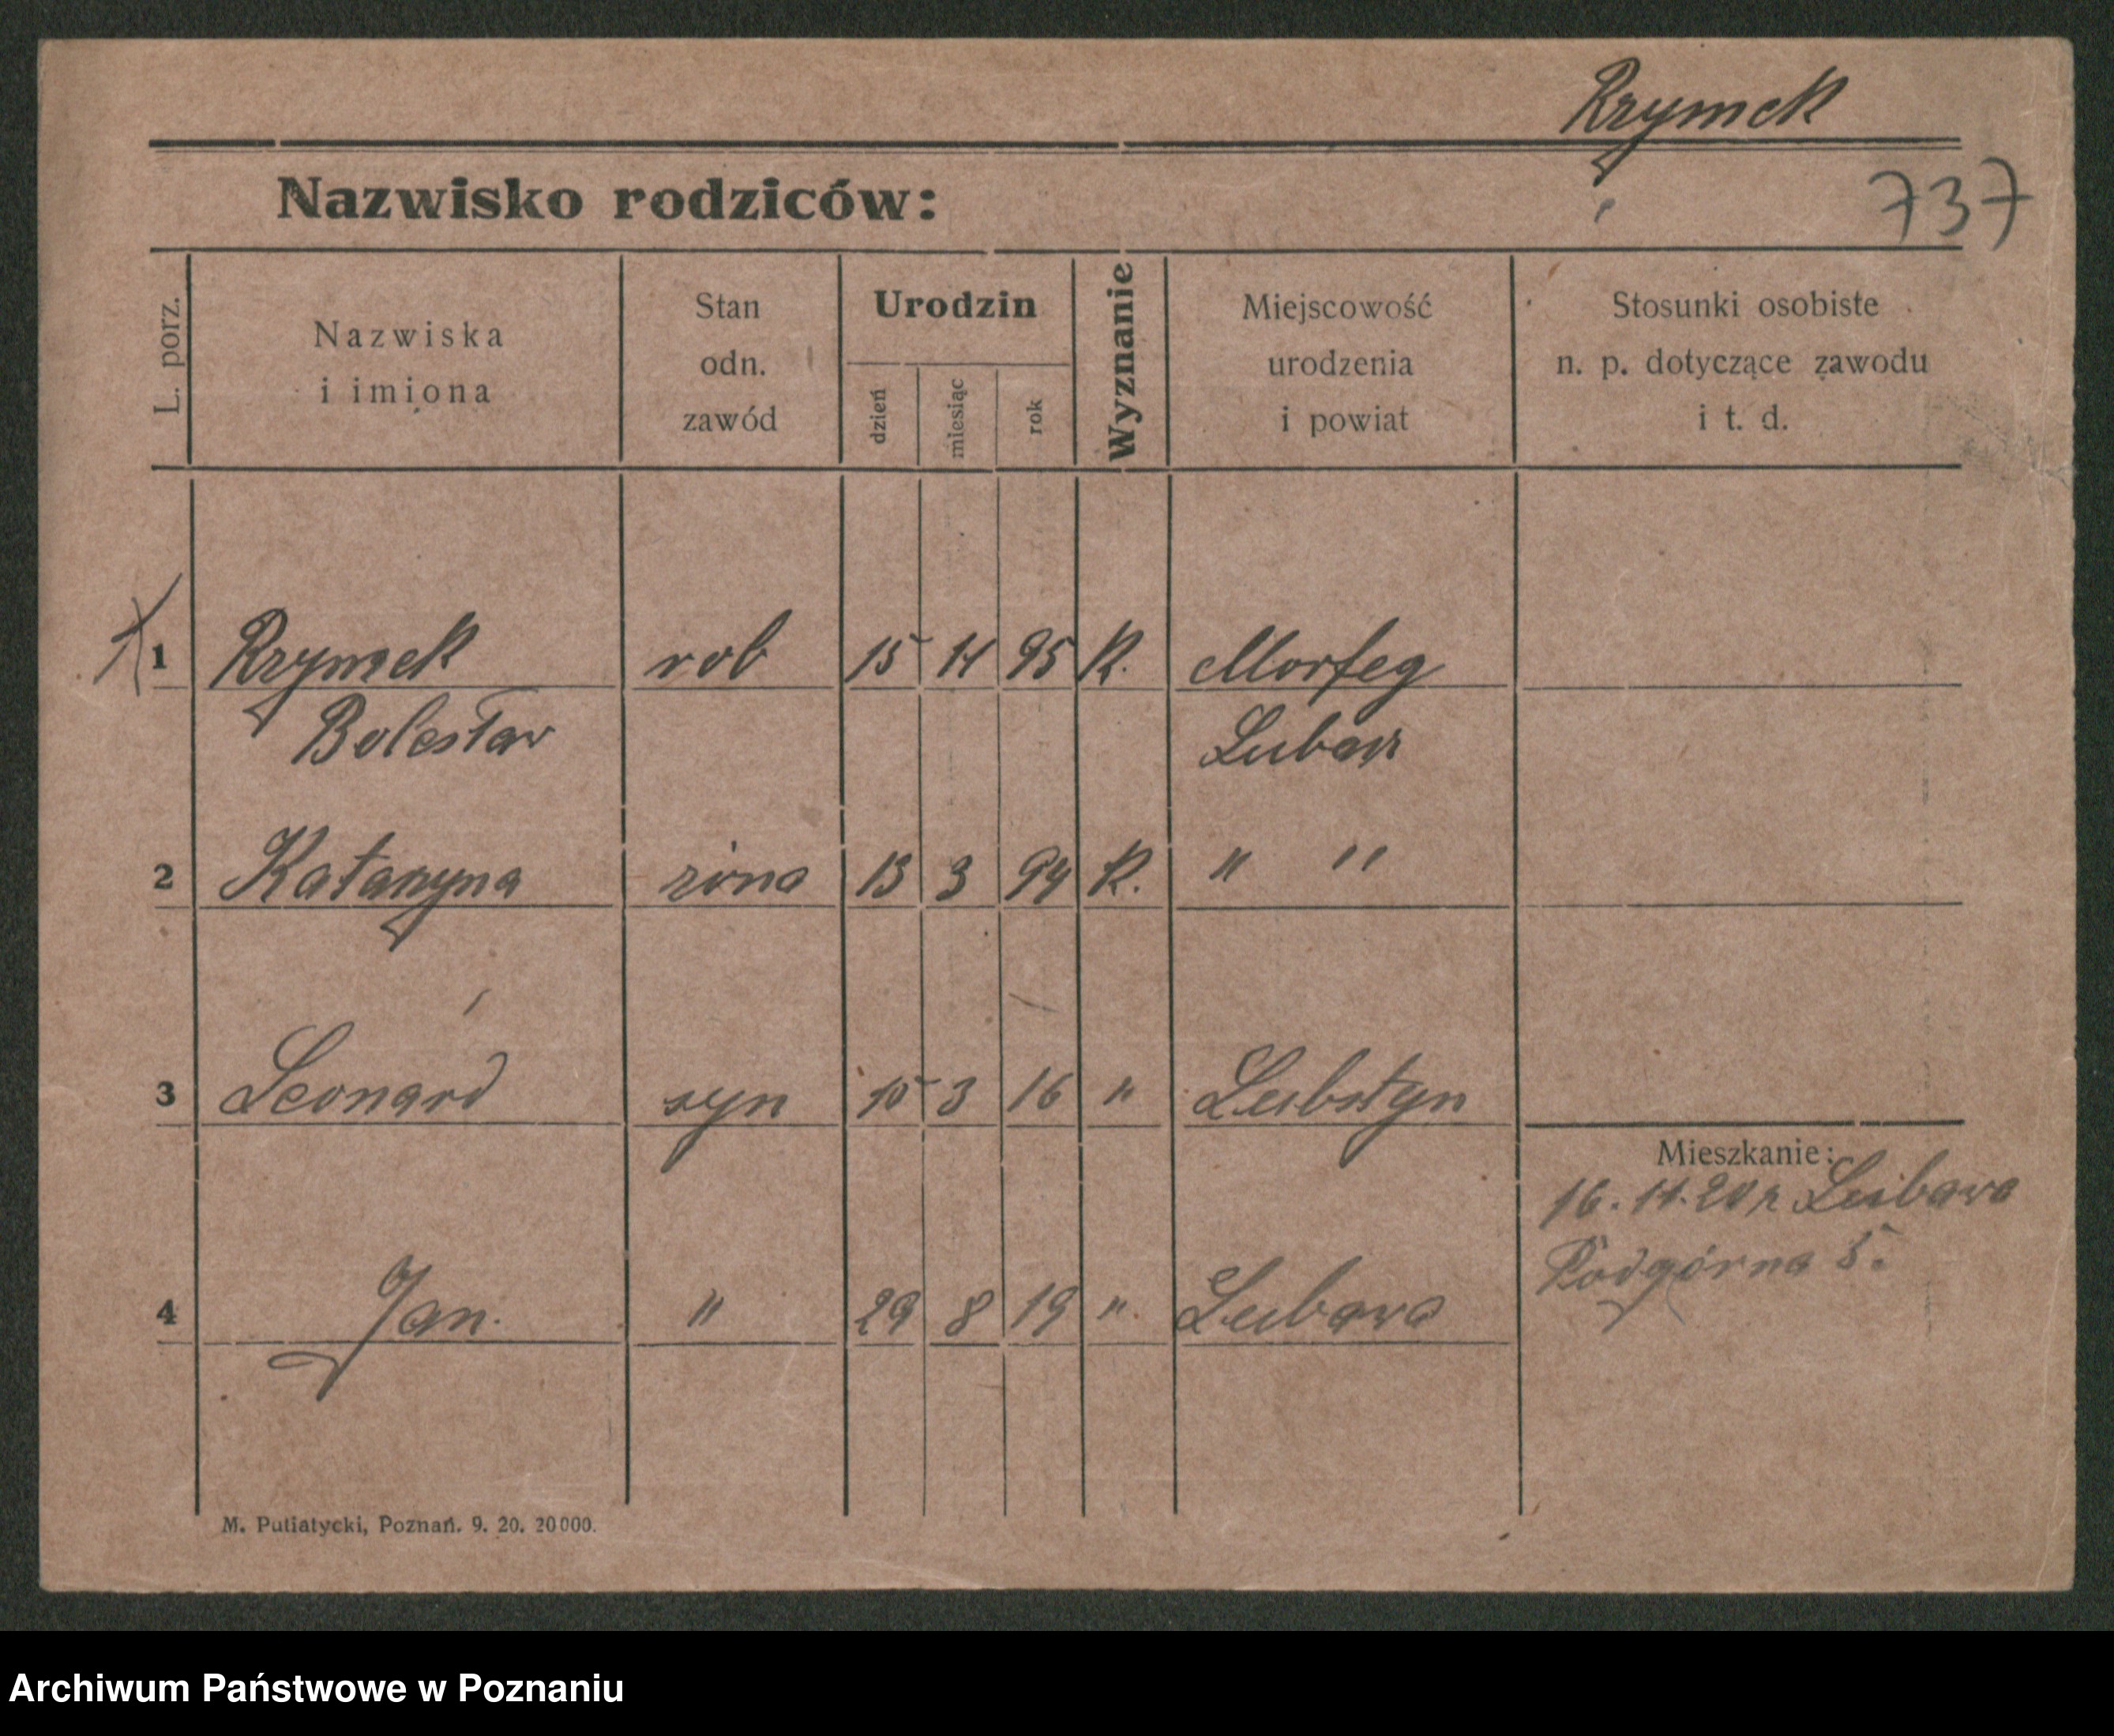 Rzymek
Nazwisko rodziców:
737
L. porz.
Nazwiska
i imiona
Stan
odn.
zawód
Urodzin
dzień
miesiąc
rok
Wyznanie
Miejscowość
urodzenia
i powiat
Stosunki osobiste
n. p. dotyczące zawodu
i t. d.
1 Rzymek rob 15 11 95 R.
Bolesław Lubaw
2 Katarzyna żona 13 3 94 R. " "
3 Leonard syn 15 3 16 " Lubstyn
Mieszkanie:
16. 11. 20 r Lubawa
Podgórna 5.
4 Jan. " 29 8 19 " Lubawa
M. Putiatycki, Poznań. 9. 20. 20000.
Archiwum Państwowe w Poznaniu